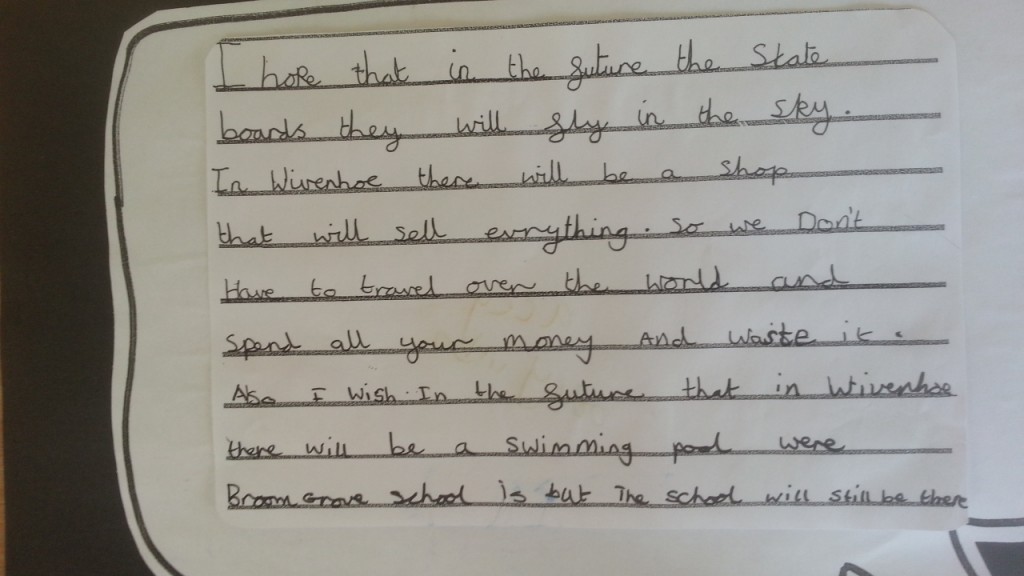 I hope that in the future the State
boards they will fly in the sky.
In Wivenhoe there will be a shop
that will sell evrything. So we Don't
Have to travel over the world and
Spend all your money And waste it.
Also I wish. In the future that in Wivenhoe
there will be a swimming pool were
Broom Grove school is but The school will still be there